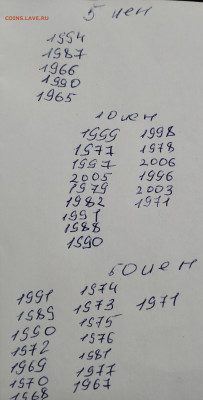 COINS.LAVE.RU
5 иен
1994
1987
1966
1990
1965
10 иен
1999 1998
1977 1978
1997 2006
2005 1996
1979 2003
1982 1971
1991
1988
1990
50 иен
1991 1974
1989 1973 1971
1990 1975
1972 1976
1969 1981
1970 1977
1968 1967